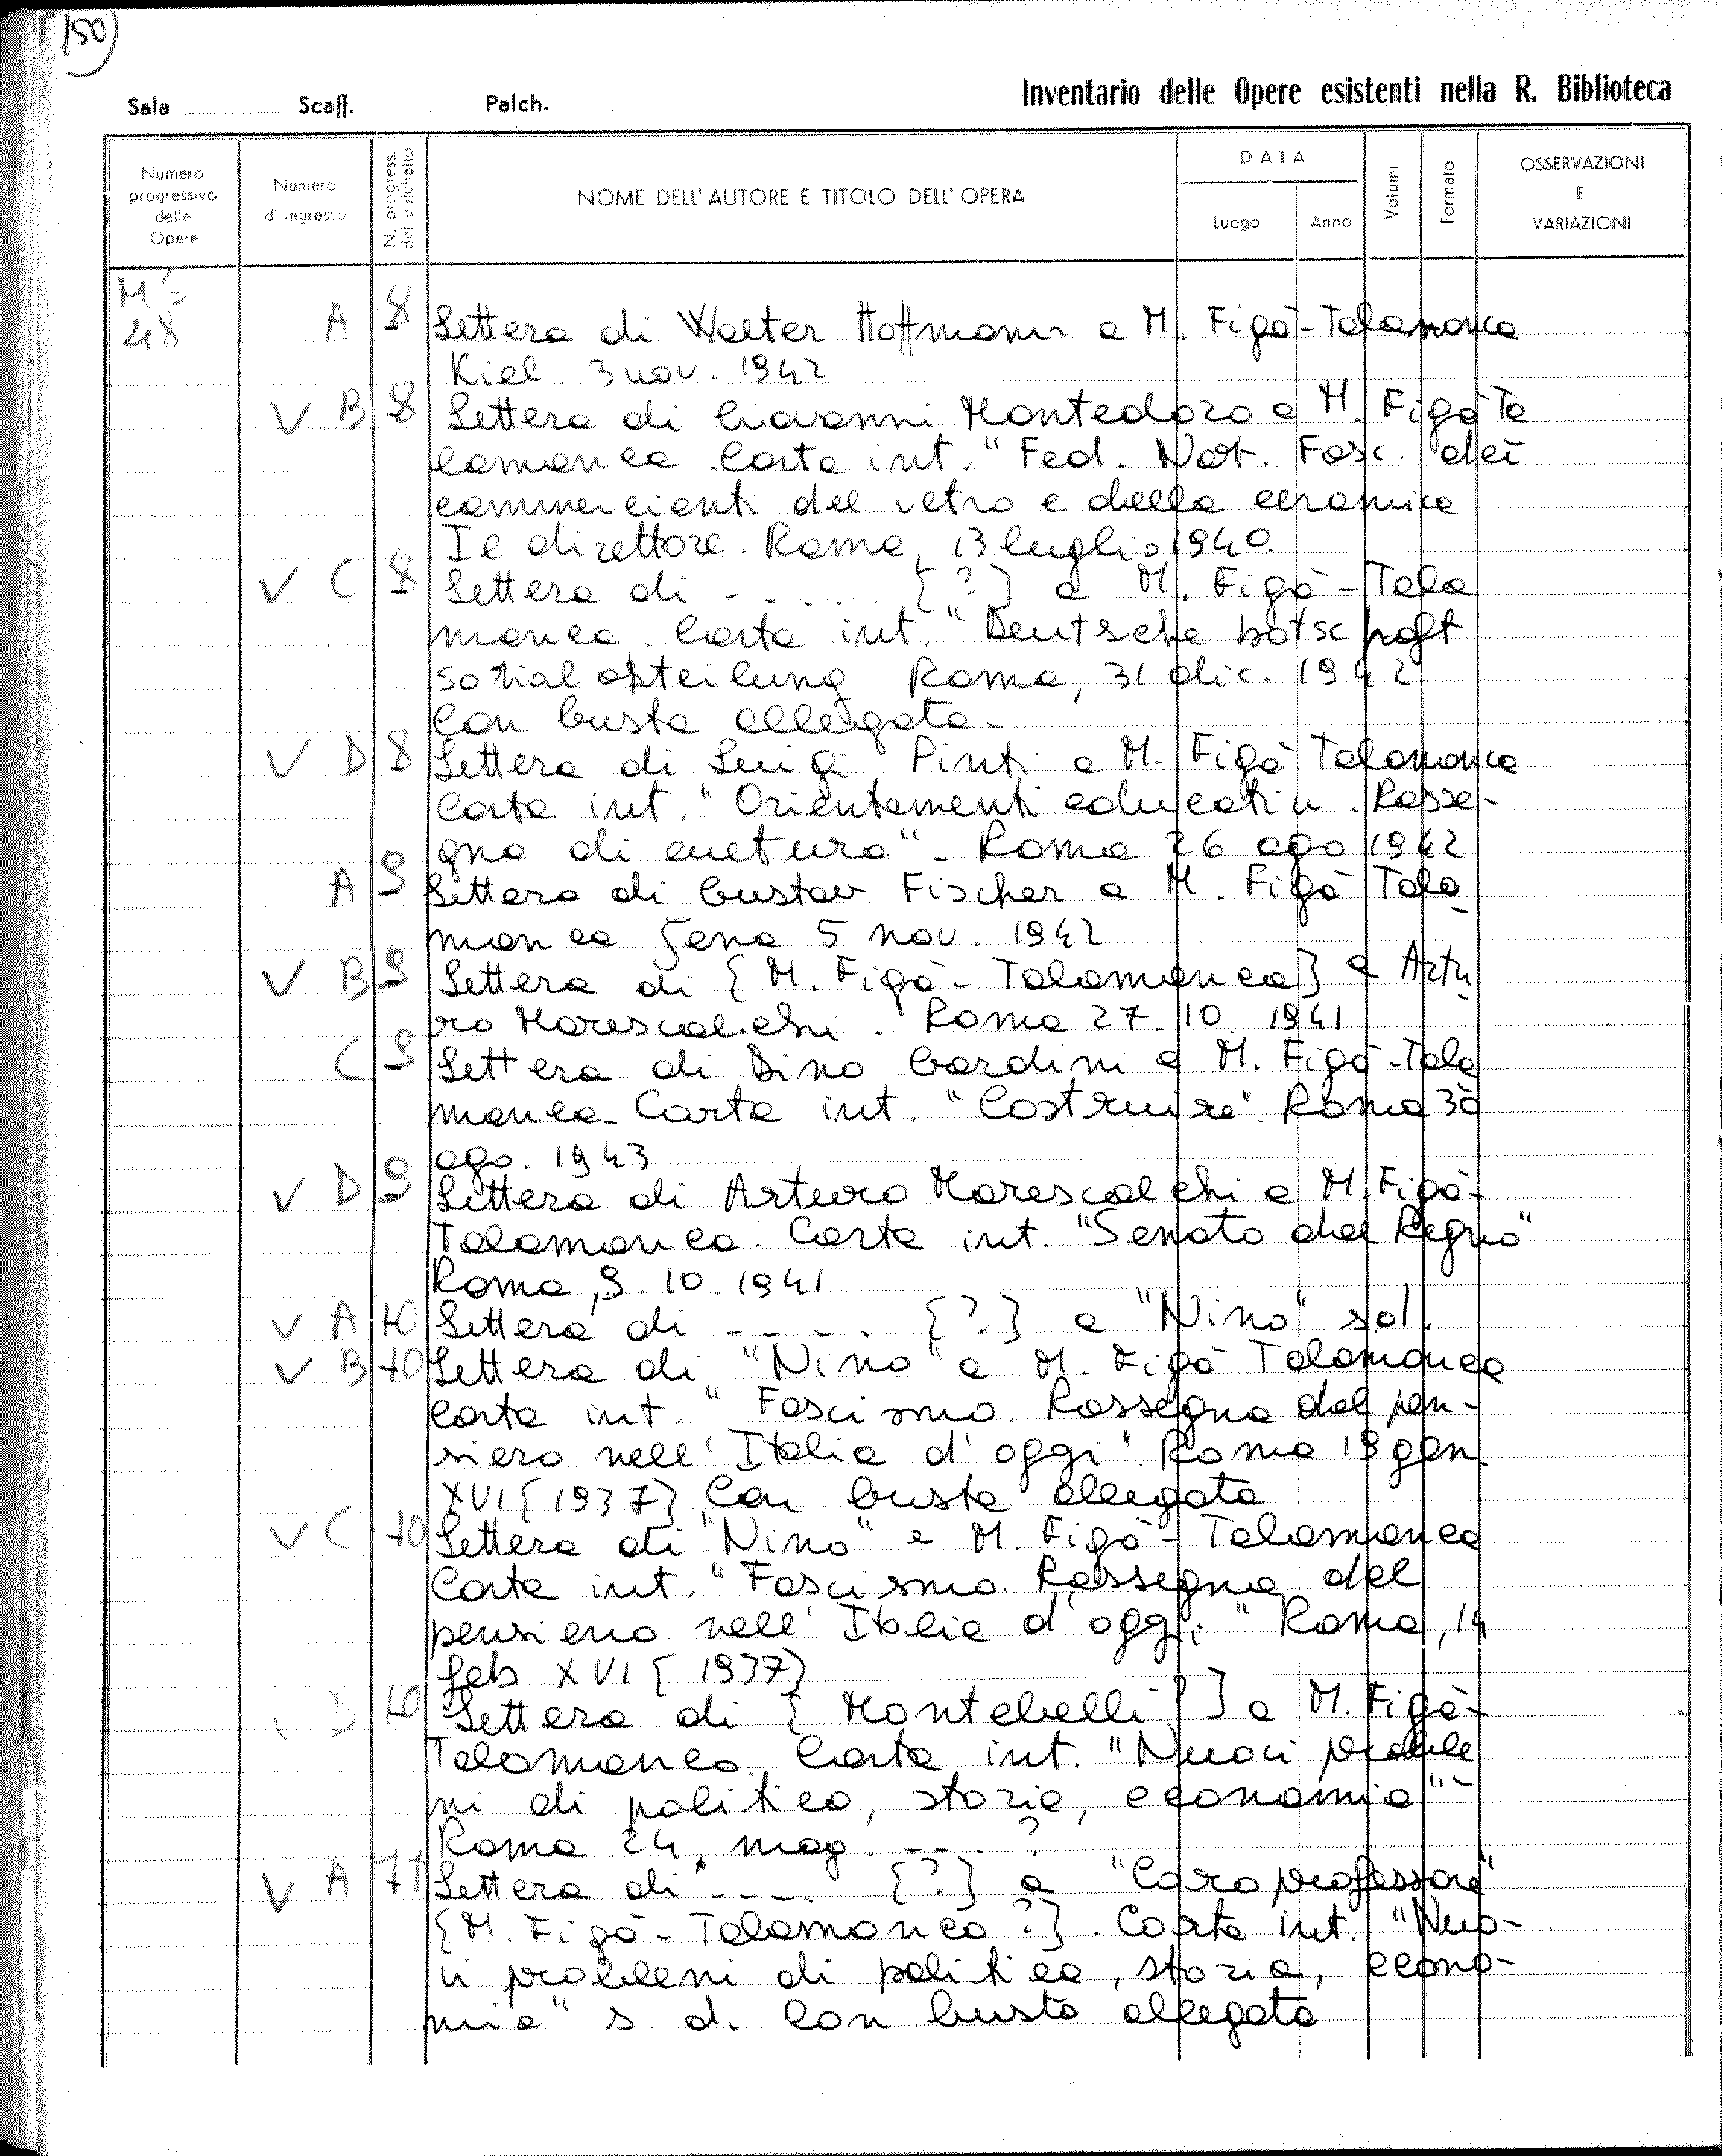 150)
Inventario delle Opere esistenti nella R. Biblioteca
Sala Scaff. Palch.
Numero progressivo delle Opere
Numero d'ingresso
N. progress. del palchetto
NOME DELL'AUTORE E TITOLO DELL'OPERA
DATA
Luogo Anno
Volumi
Formato
OSSERVAZIONI E VARIAZIONI
MS
48
A 8 Lettera di Walter Hoffmann a M. Figà-Talamonca
Kiel 3 nov. 1942
V B 8 Lettera di Giovanni Montedoro a M. Figà Ta
lamonca Carta int. "Fed. Naz. Fasc. dei
commercianti del vetro e della ceramica
Il direttore. Roma, 13 luglio 1940.
V C 8 Lettera di ..... [?] a M. Figà-Tala
manca Carta int. "Deutsche botschaft
sozialabteilung Roma, 31 dic. 1942
Con busta allegata.
V D 8 Lettera di Luigi Pinti a M. Figà Talamonca
Carta int. "Orientamenti educativi. Rasse-
gna di cultura". Roma 26 ago 1942
A 9 Lettera di Gustav Fischer a M. Figà Tala-
manca Jena 5 nov. 1942
V B 9 Lettera di [M. Figà-Talamanca] a Artu-
ro Marescalchi. Roma 27.10.1941
C 9 Lettera di Dino Gardini a M. Figà-Tala
manca. Carta int. "Costruire". Roma 30
ago. 1943
V D 9 Lettera di Arturo Marescalchi a M. Figà-
Talamanca. Carta int. "Senato del Regno"
Roma, 9.10.1941
V A 10 Lettera di ..... [?] a "Nino" sd.
V B 10 Lettera di "Nino" a M. Figà Talamanca
Carta int. "Fascismo. Rassegna del pen-
siero nell'Italia d'oggi" Roma 19 gen.
XVI [1937] Con busta allegata
V C 10 Lettera di "Nino" a M. Figà-Talamanca
Carta int. "Fascismo. Rassegna del
pensiero nell'Italia d'oggi" Roma, 14
feb XVI [1937]
D 10 Lettera di [Montebelli?] a M. Figà-
Talamanca. Carta int. "Nuovi proble
mi di politica, storia, economia"-
Roma 24 mag. ....?
V A 11 Lettera di .... [?] a "Caro professore"
[M. Figà-Talamanca?]. Carta int. "Nuo-
vi problemi di politica, storia, econo-
mia" s.d. Con busta allegata